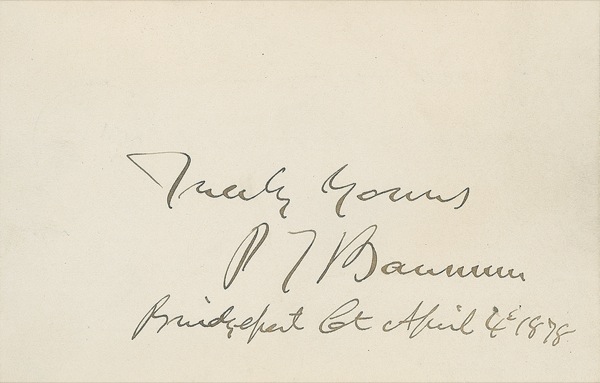 Truly Yours
P T Barnum
Bridgeport Ct April 4 1878